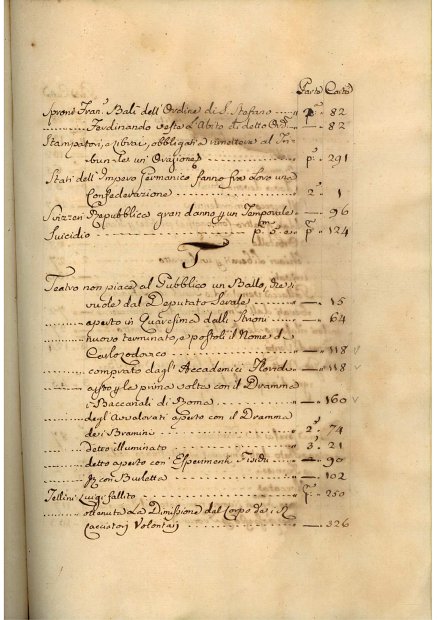 Parte Carte
Sproni Fran.° Balì dell'Ordine di S. Stefano p.ª 82
Ferdinando veste l'Abito di detto Ord.e 82
Stampatori, e librai, obbligati a rimettere al Tri-
bunale un p.ª 291
Stati dell'Impero Germanico fanno fra loro una
Confederazione 2.ª 1
Svizzeri Repubblica gran danno p un Temporale 96
Suicidio p.ª 124
T
Teatro non piace al Pubblico un Ballo, che
vuole dal Deputato Serale 15
aperto in Quaresima dalli Strioni 64
nuovo terminato, e postoli il Nome di
Carlo 118
comprato dagl'Accademici Floridi 118
aperto p la prima volta con il Dramma
i Baccanali di Roma 160
degl'Avvalorati aperto con il Dramma
dei Bramini 2.ª 74
detto illuminato 3.ª 21
detto aperto con Esperimenti Fisici 90
con Burletta 102
Tellini Luigi fallito p.ª 250
ottenuta la Dimissione dal Corpo dei R.
Cacciatori Volontarj 326